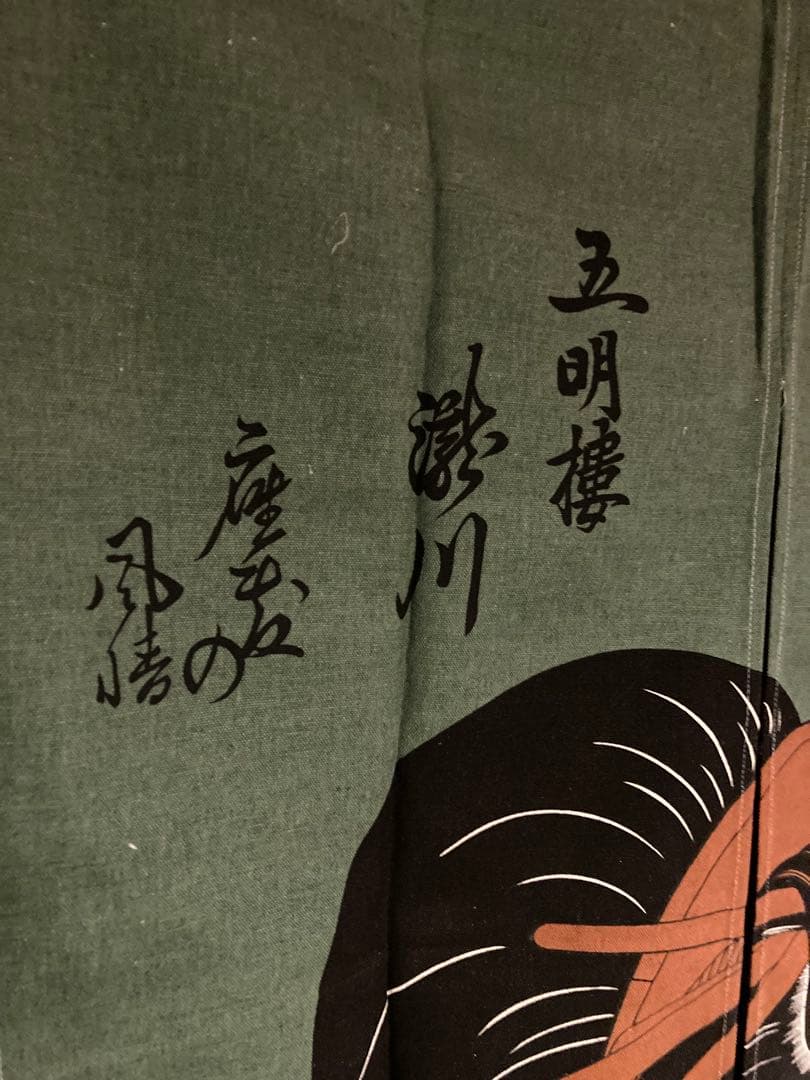 五明樓
瀧川
座敷の
風情